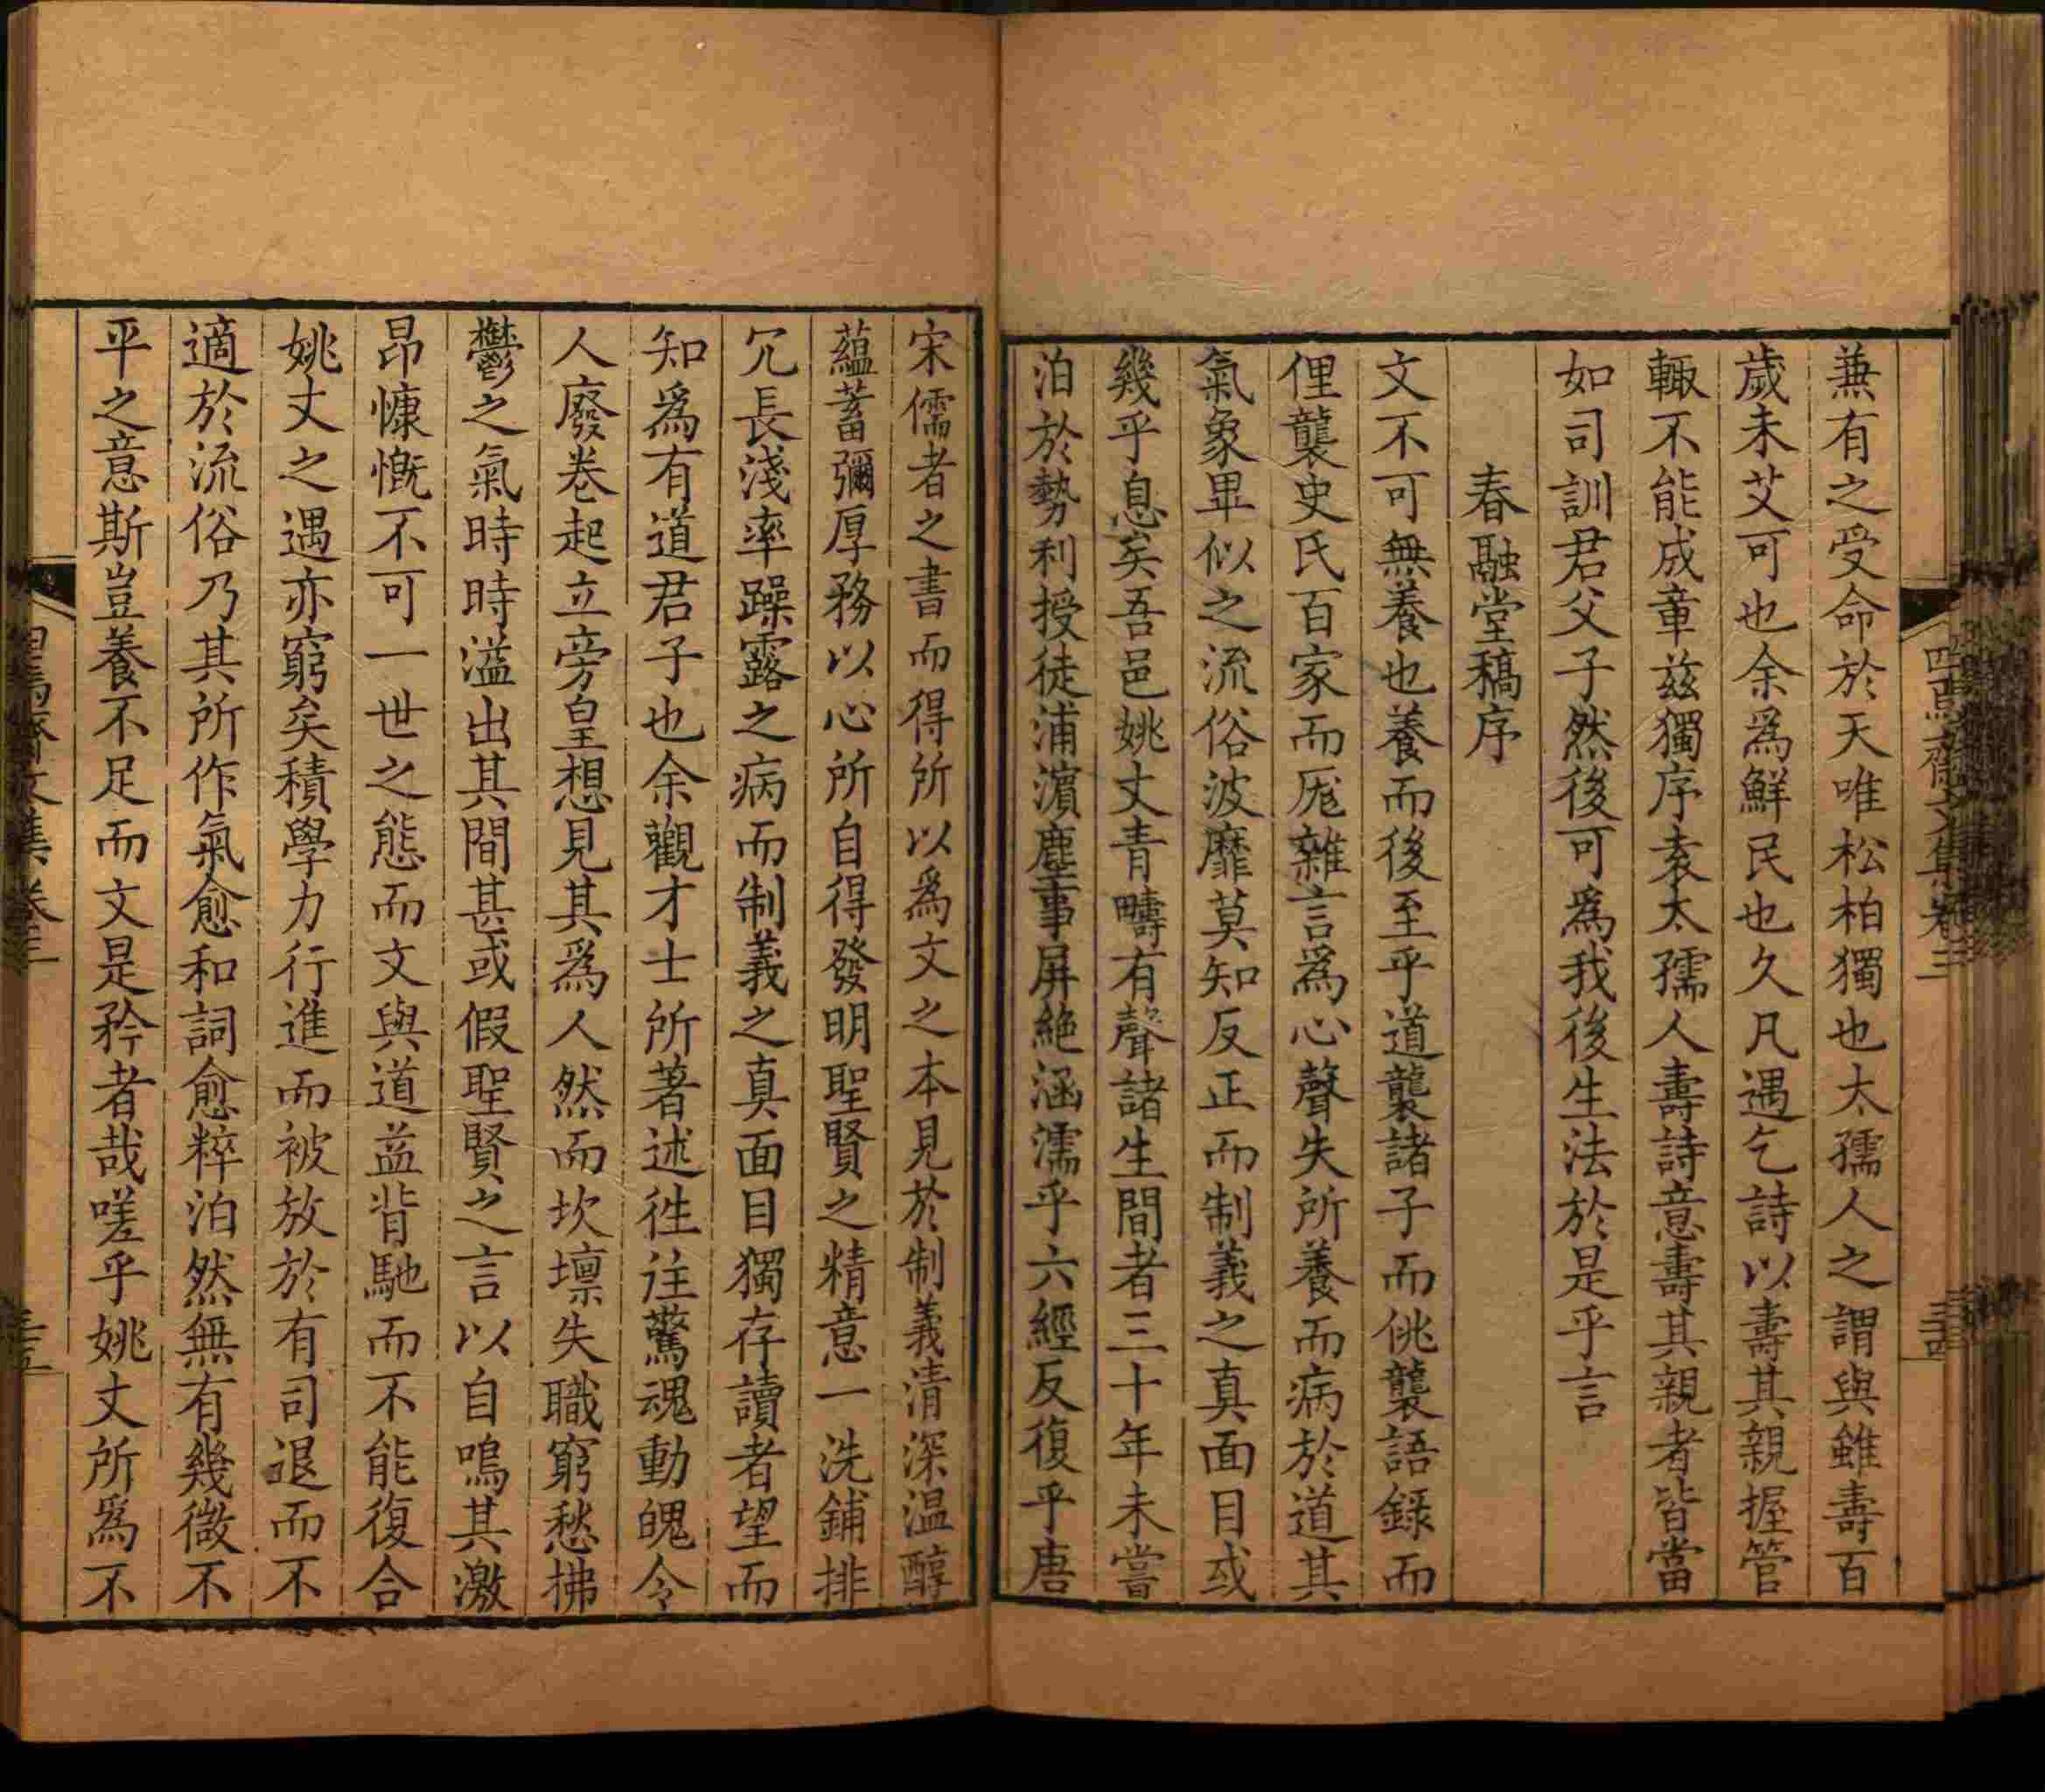 兼有之受命於天唯松柏獨也太孺人之謂與雖壽百
歲未艾可也余爲鮮民也久凡遇乞詩以壽其親握管
輒不能成章兹獨序袁太孺人壽詩意壽其親者皆當
如司訓君父子然後可爲我後生法於是乎言
春融堂稿序
文不可無養也養而後至乎道襲諸子而佻襲語錄而
俚襲史氏百家而厖雜言爲心聲失所養而病於道其
氣象畢似之流俗波靡莫知反正而制義之真面目或
幾乎息矣吾邑姚丈青疇有聲諸生間者三十年未嘗
泊於勢利授徒浦濵塵事屏絶涵濡乎六經反復乎唐
宋儒者之書而得所以爲文之本見於制義清深温醇
蘊蓄彌厚務以心所自得發明聖賢之精意一洗鋪排
冗長淺率躁露之病而制義之真面目獨存讀者望而
知爲有道君子也余觀才士所著述徃徃驚魂動魄令
人廢卷起立旁皇想見其爲人然而坎壈失職窮愁拂
鬱之氣時時溢出其間甚或假聖賢之言以自鳴其激
昂慷慨不可一世之態而文與道益背馳而不能復合
姚丈之遇亦窮矣積學力行進而被放於有司退而不
適於流俗乃其所作氣愈和詞愈粹泊然無有幾微不
平之意斯豈養不足而文是矜者哉嗟乎姚丈所爲不